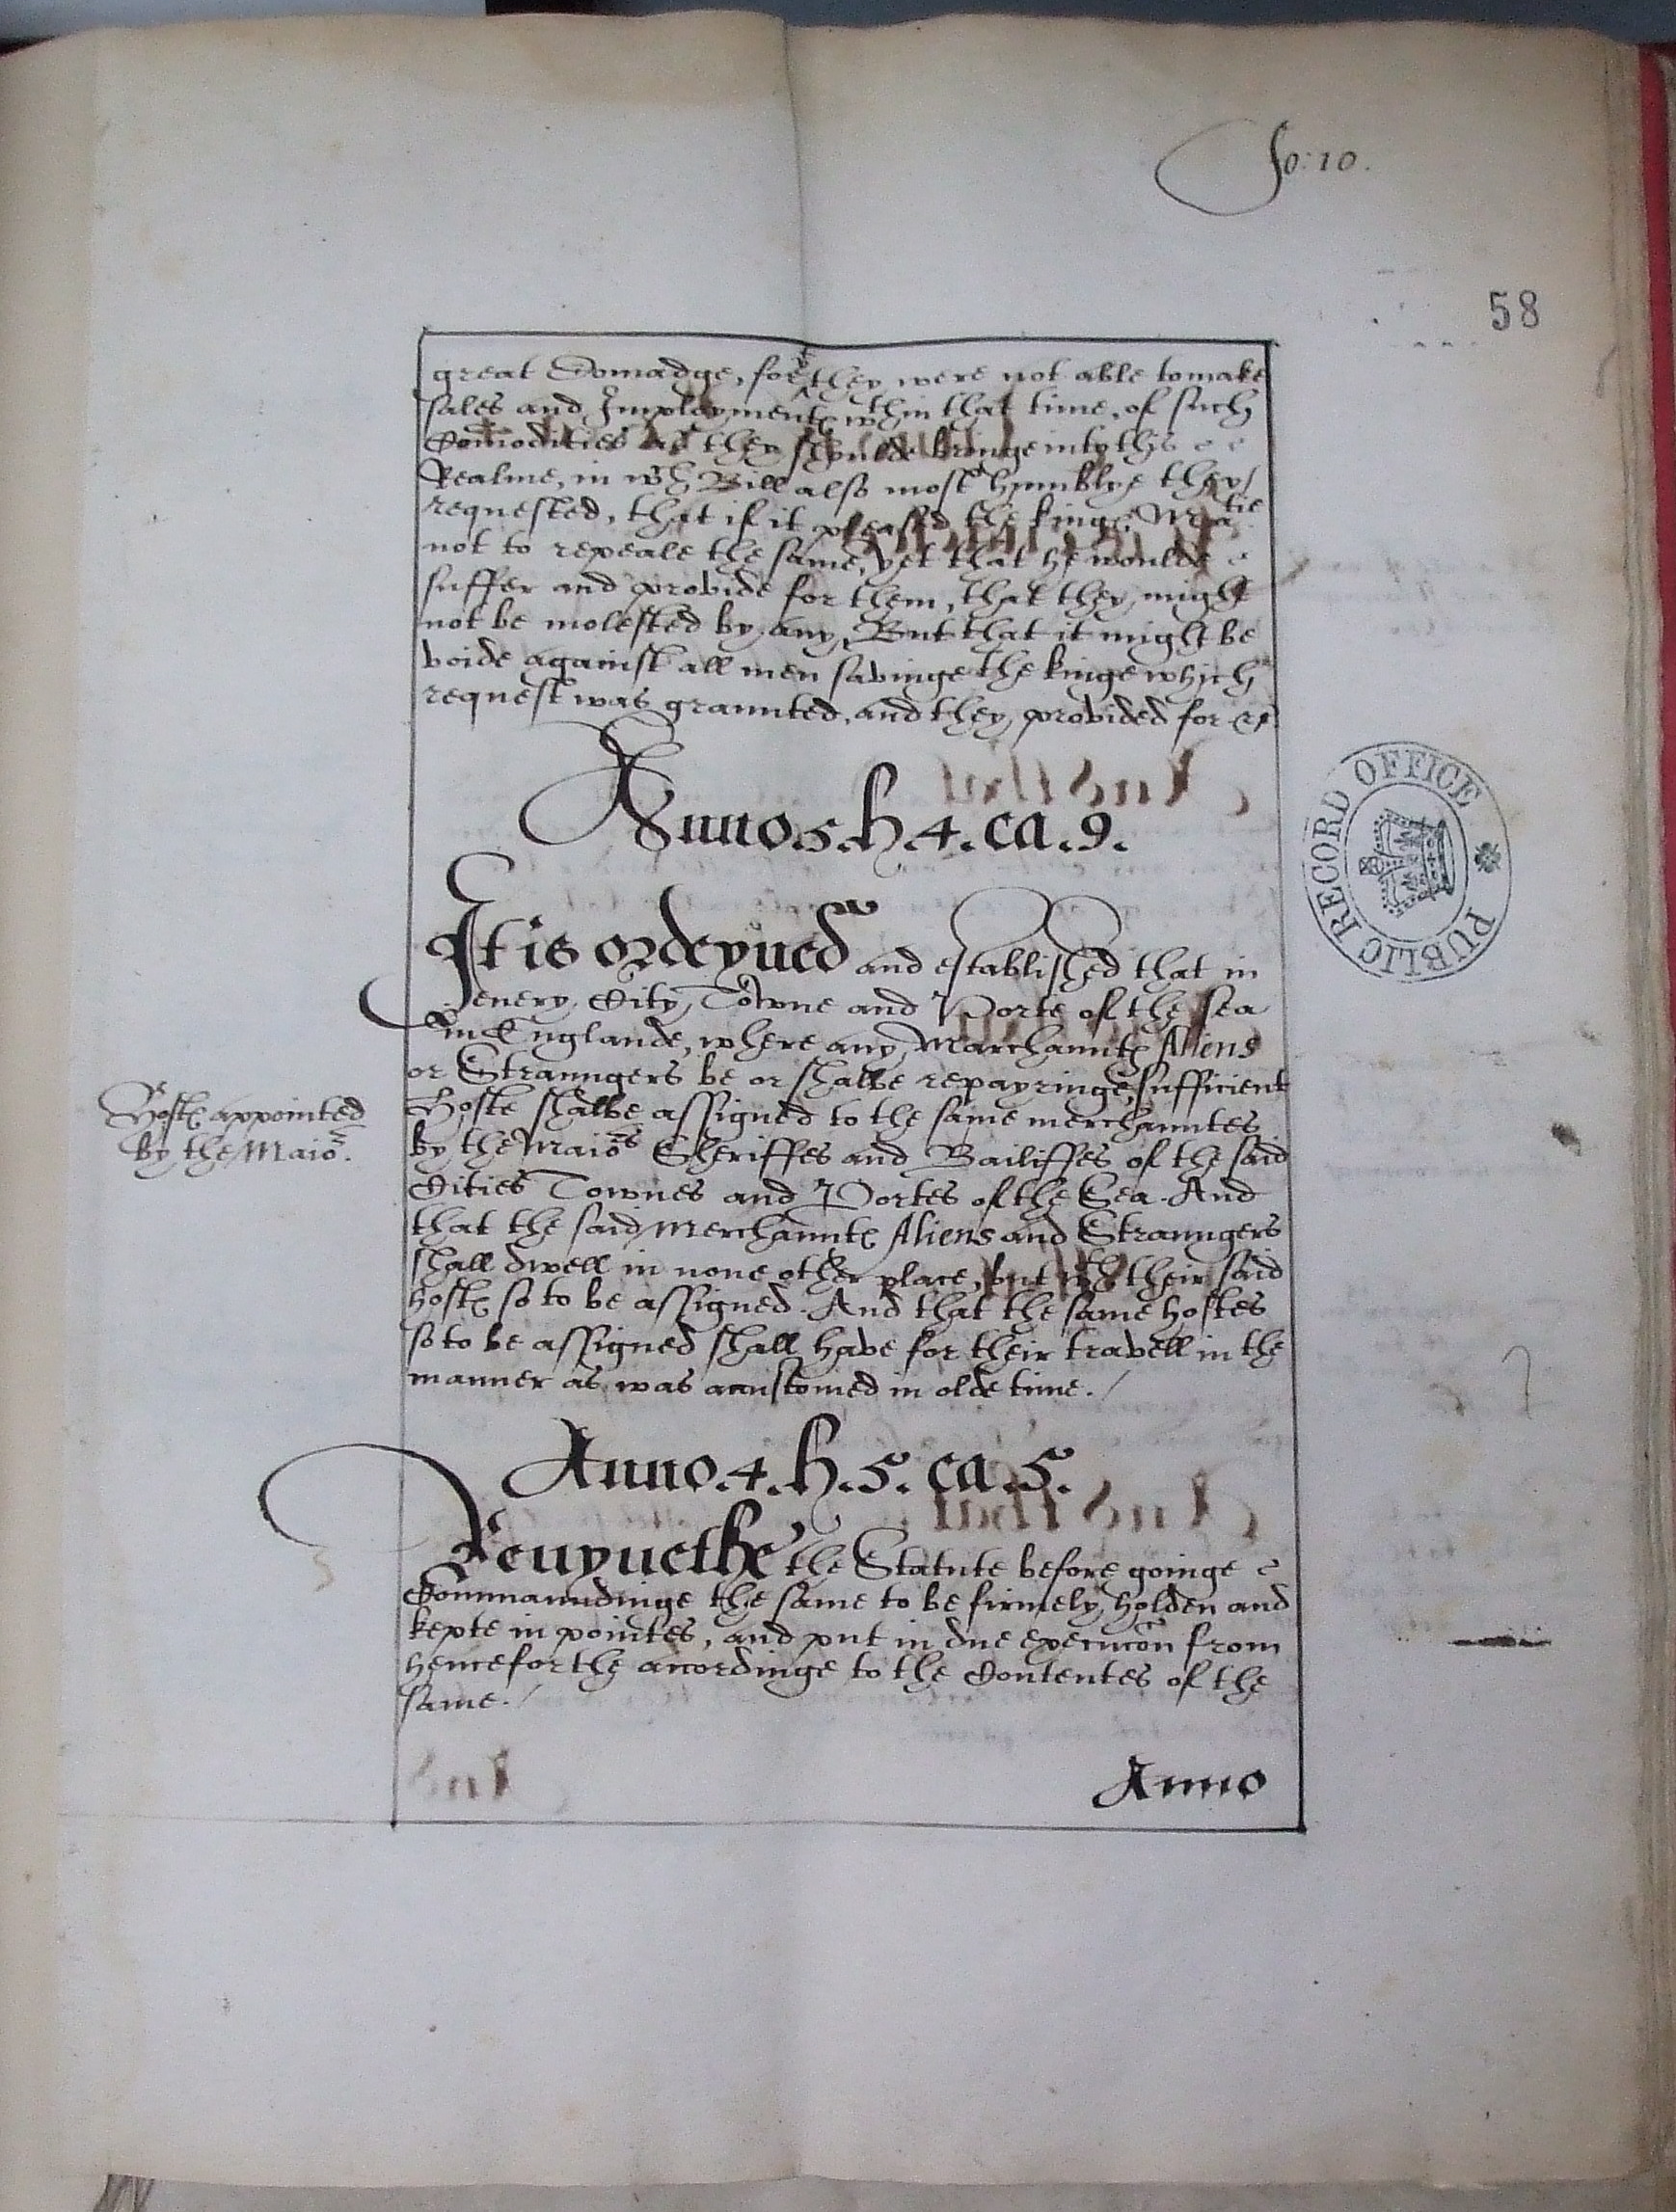 fo: 10.
58
great Domadge, for yt they were not able to make
sales and Imploymentes wthin that time, of such
Comodities as they shoulde bringe into this
Realme, in wch Bill also most humblye they
requested, that if it pleased the kinges Matie
not to repeale the same, yet that he woulde
suffer and provide for them, that they might
not be molested by any, But that it might be
voide against all men savinge the kinge which
request was graunted, and they provided for
Anno. 5. H. 4. ca. 9.
It is ordeyned and established that in
euery City, Towne and Porte of the sea
in Englande, where any Marchauntes Aliens
or Straungers be or shalbe repayringe, sufficient
Hoste shalbe assigned to the same merchauntes
by the Maiors Sheriffes and Bailiffes of the said
Cities Townes and Portes of the Sea. And
that the said Merchauntes Aliens and Straungers
shall dwell in none other place, but wth their said
hostes so to be assigned. And that the same hostes
so to be assigned shall have for their travell in the
manner as was accustomed in olde time. /
Hostes appointed
by the Maiors.
Anno. 4. H. 5. ca. 5.
Renyuethe the Statute before goinge
Commaundinge the same to be firmely holden and
kepte in pointes, and put in due execucon from
henceforthe accordinge to the Contentes of the
same. /
Anno
PUBLIC RECORD OFFICE